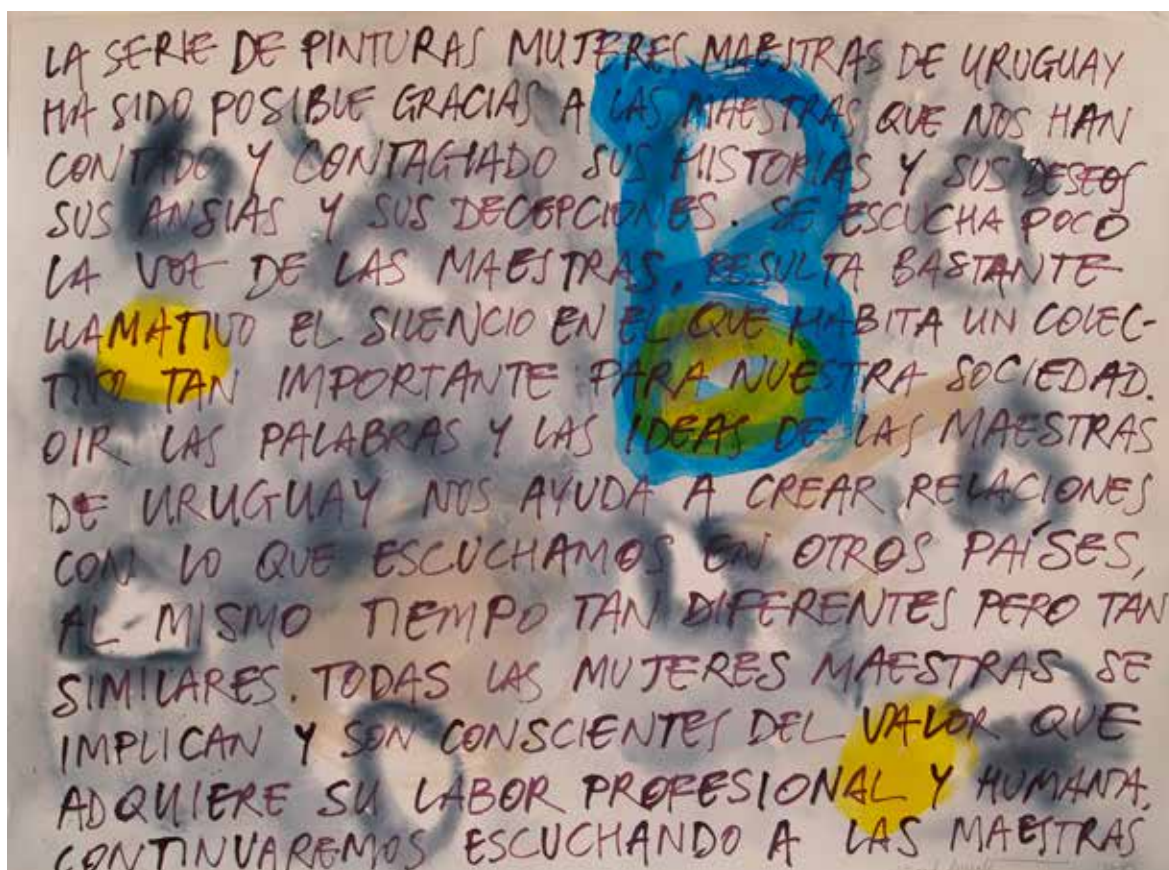 LA SERIE DE PINTURAS MUJERES MAESTRAS DE URUGUAY
HA SIDO POSIBLE GRACIAS A LAS MAESTRAS QUE NOS HAN
CONTADO Y CONTAGIADO SUS HISTORIAS Y SUS DESEOS
SUS ANSIAS Y SUS DECEPCIONES. SE ESCUCHA POCO
LA VOZ DE LAS MAESTRAS. RESULTA BASTANTE
LLAMATIVO EL SILENCIO EN EL QUE HABITA UN COLEC-
TIVO TAN IMPORTANTE PARA NUESTRA SOCIEDAD.
OIR LAS PALABRAS Y LAS IDEAS DE LAS MAESTRAS
DE URUGUAY NOS AYUDA A CREAR RELACIONES
CON LO QUE ESCUCHAMOS EN OTROS PAÍSES,
AL MISMO TIEMPO TAN DIFERENTES PERO TAN
SIMILARES. TODAS LAS MUJERES MAESTRAS SE
IMPLICAN Y SON CONSCIENTES DEL VALOR QUE
ADQUIERE SU LABOR PROFESIONAL Y HUMANA.
CONTINUAREMOS ESCUCHANDO A LAS MAESTRAS